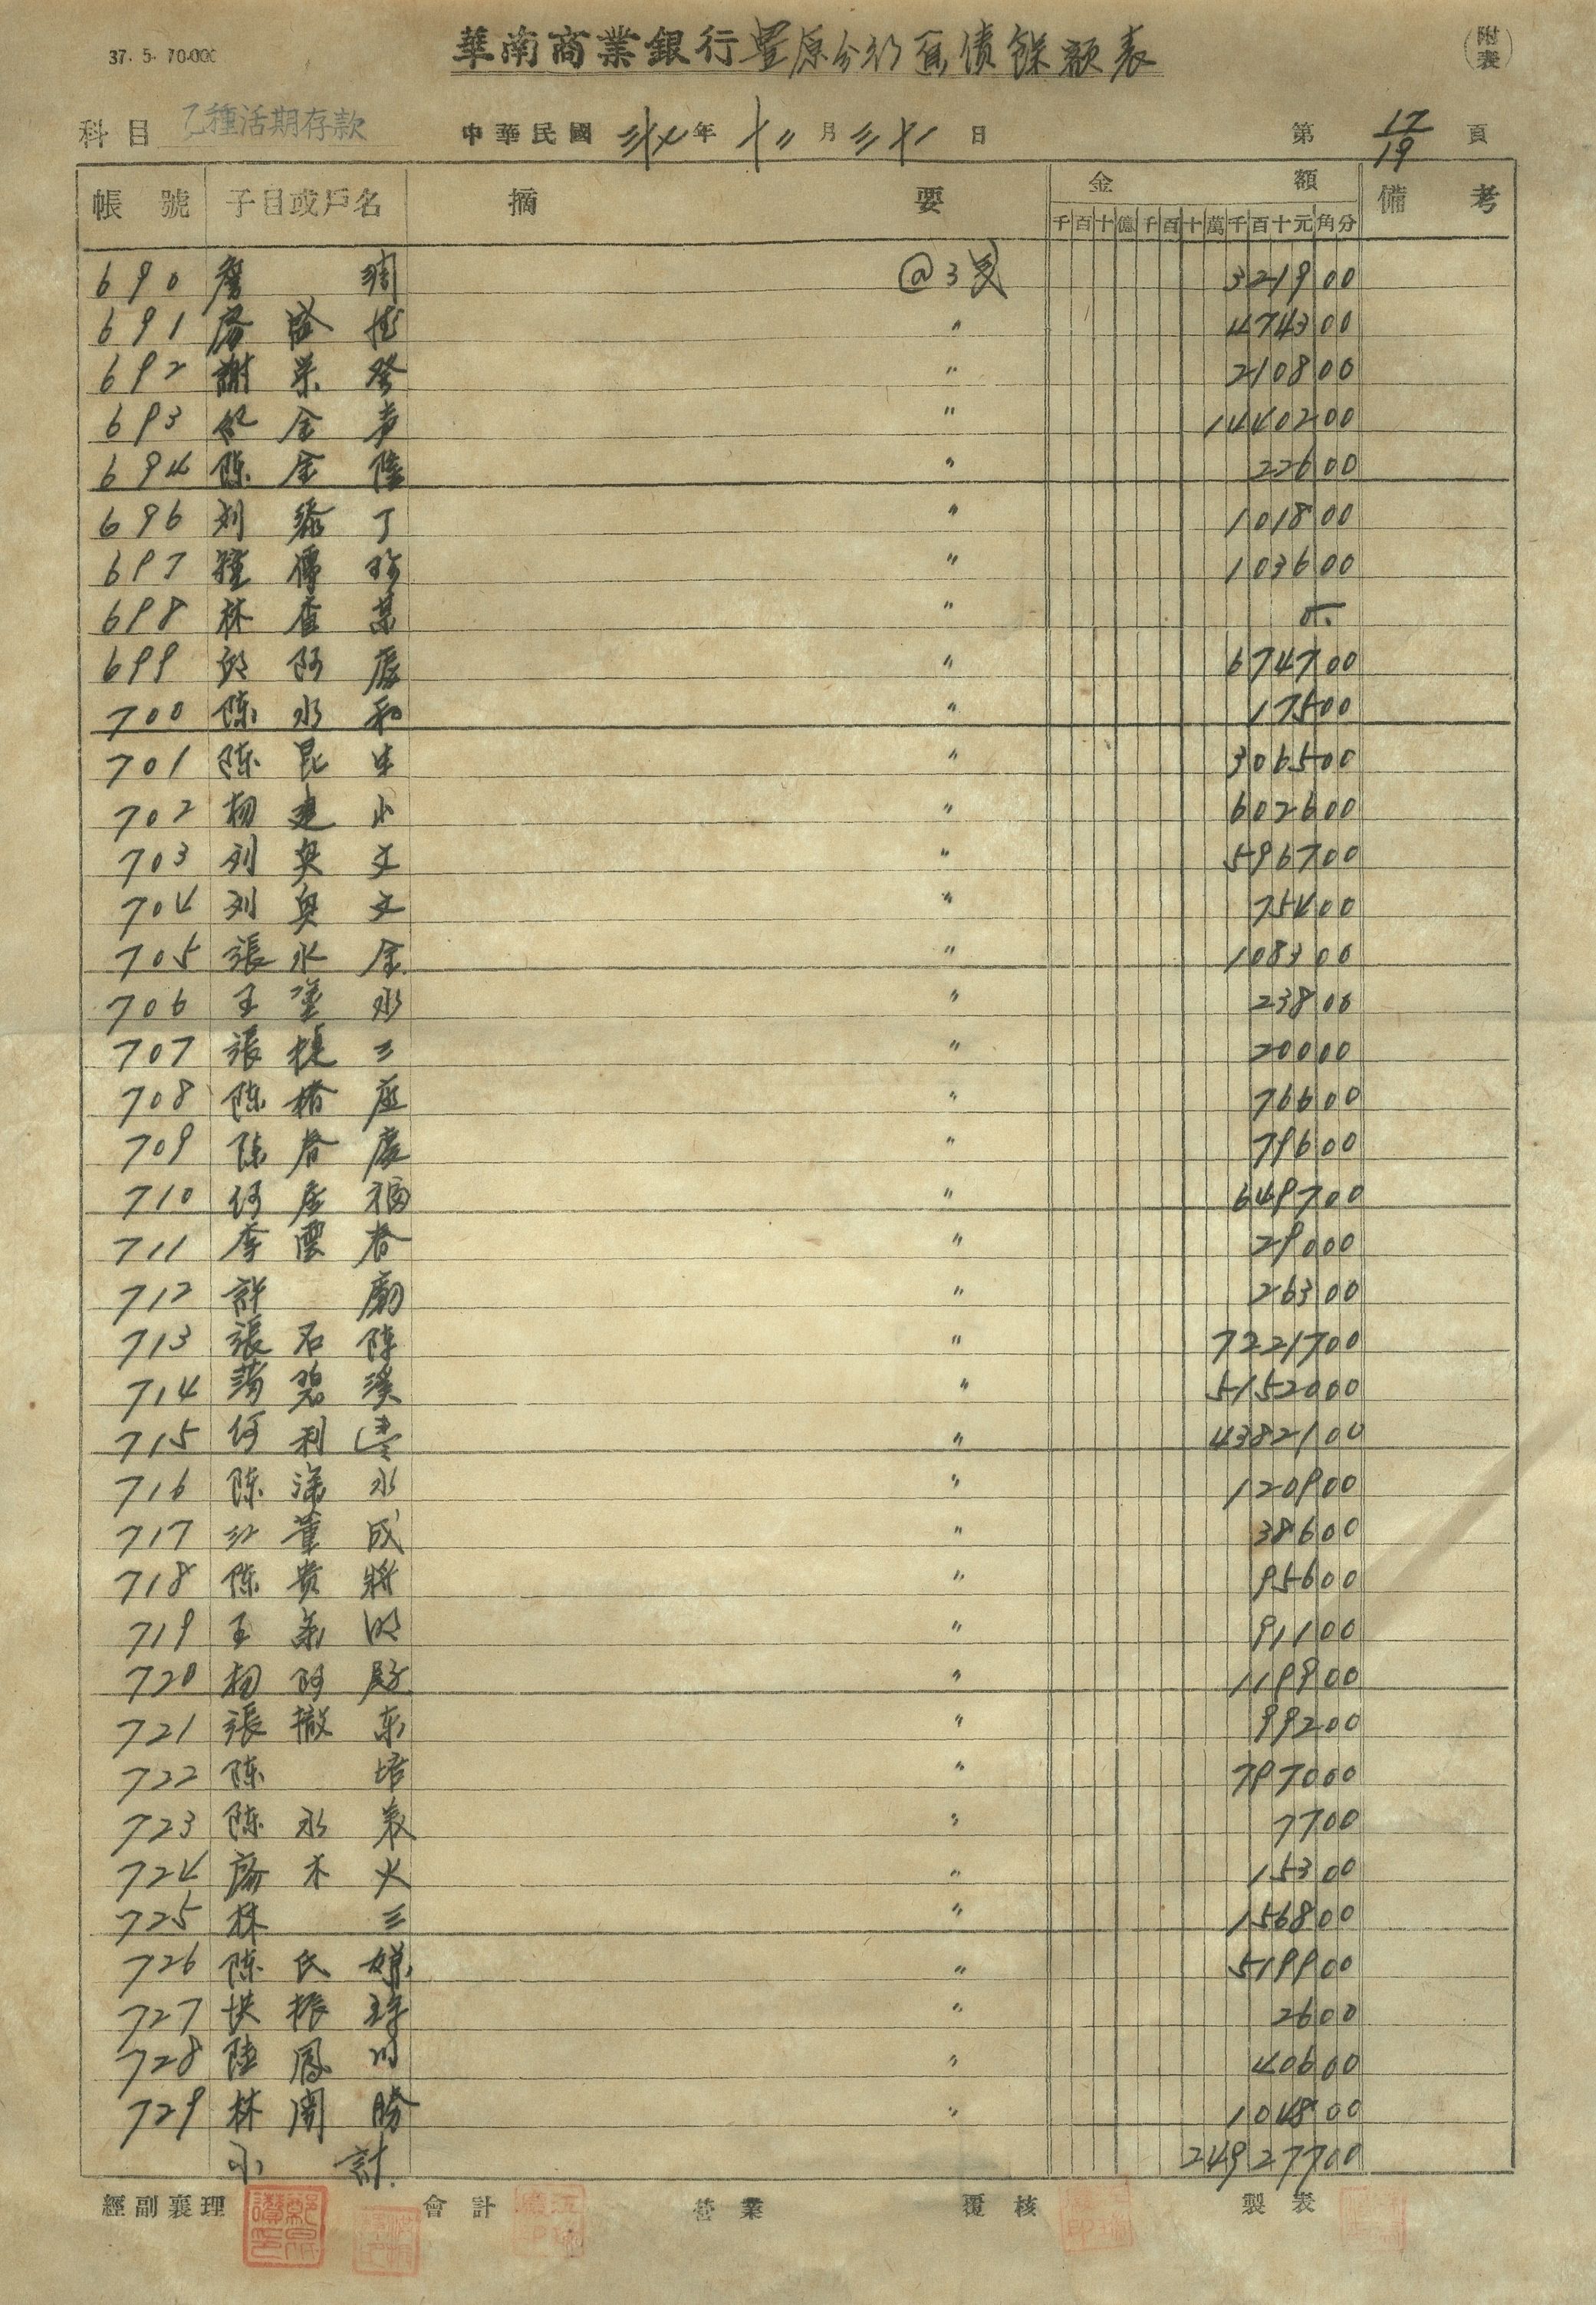 37. 5. 70.000
華南商業銀行豐原分行舊債餘額表
(附表)
科目 乙種活期存款 中華民國 三十七 年 十二 月 三十一 日 第 17/19 頁
帳號 子目或戶名 摘要 金額 備考
千百十億千百十萬千百十元角分
690 詹 @3 321900
691 廖 〃 474300
692 謝 榮 發 〃 210800
693 金 〃 1440200
694 陳 金 陸 〃 22600
696 刘 添 丁 〃 101800
697 鐘 傳 珍 〃 103600
698 林 查 某 〃
699 邱 阿 慶 〃 674700
700 陳 水 和 〃 17500
701 陳 昆 生 〃 306500
702 楊 連 小 〃 602600
703 刘 奥 文 〃 596700
704 刘 奥 文 〃 75400
705 張 水 金 〃 108300
706 王 塗 水 〃 23800
707 張 捷 三 〃 20000
708 陳 椿 座 〃 76600
709 陳 春 慶 〃 79600
710 何 屋 福 〃 649700
711 李 雲 春 〃 29000
712 許 〃 26300
713 張 石 陣 〃 7221700
714 碧 溪 〃 5152000
715 何 利 〃 4382100
716 陳 添 水 〃 120900
717 江 董 成 〃 38600
718 陳 貴 將 〃 95600
719 王 明 〃 91100
720 楊 阿 財 〃 119900
721 張 撤 東 〃 99200
722 陳 培 〃 797000
723 陳 永 表 〃 7700
724 廖 木 火 〃 15300
725 林 三 〃 156800
726 陳 氏 〃 519900
727 振 〃 2600
728 陸 鳳 川 〃 40600
729 林 開 勝 〃 104800
小計 24927700
經副襄理 會計 營業 覆核 製表